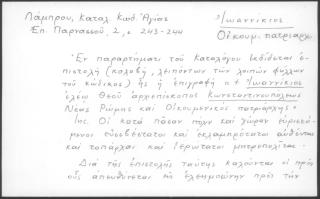 Λάμπρου, Καταλ. Κωδ. Ἁγίας
Ἐπ Παρνασσοῦ, 2, σ 243-244
Ἰωαννίκιος
Οἰκουμ. πατριάρχ.
Ἐν παραρτήματι τοῦ Καταλόγου ἐκδίδεται ἐπιστολὴ (κολοβή, λειπόντων τῶν λοιπῶν φύλλων
τοῦ κώδικος) ἧς ἡ ἐπιγραφή "† Ἰωαννίκιος
ἐλέῳ Θεοῦ ἀρχιεπίσκοπος Κωνσταντινουπόλεως
Νέας Ῥώμης καὶ Οἰκουμενικὸς πατριάρχης"
Ἰης. Οἱ κατὰ πᾶσαν πόλιν καὶ χώραν εὑρισκόμενοι εὐσεβέστατοι καὶ ἐκλαμπρότατοι αὐθένται
καὶ τοπάρχαι καὶ ἱερώτατοι μητροπολῖται.
Διὰ τῆς ἐπιστολῆς ταύτης καλοῦνται οἱ πρὸς
οὓς ἀπευθύνεται εἰς ἐλεημοσύνην πρὸς τὴν